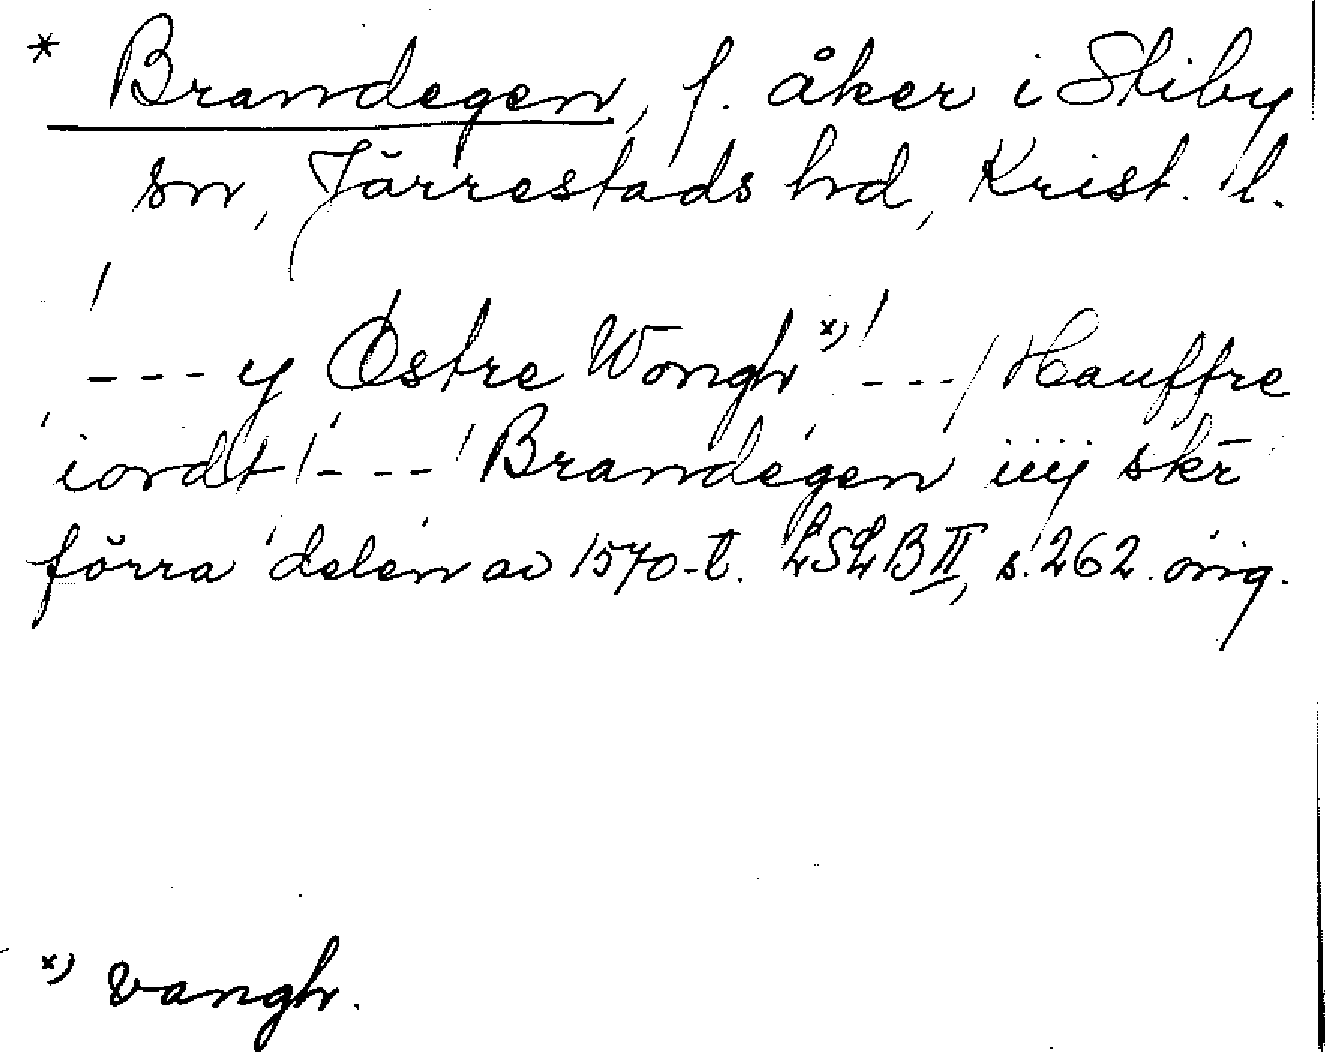 * Brandegen, f. åker i Stiby
sn, Järrestads hd, Krist. l.
/ --- y Østre Wongh x) / --- / Hauffre
iordt / --- / Brandegen iiij skr̄
förra delen av 1570-t. LSLB II, s. 262. orig.
x) vangh.